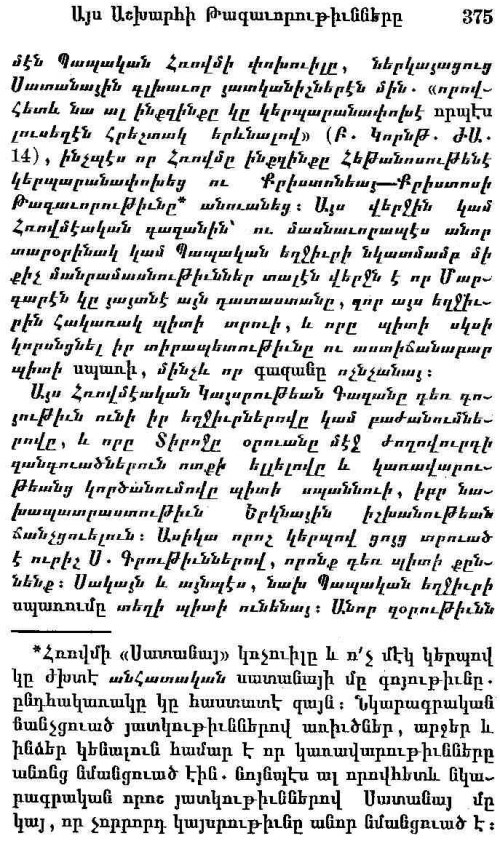 Այս Աշխարհի Թագաւորութիւնները 375
մէն Պապական Հռովմի փոխուիլը, ներկայացուց
Սատանային գլխաւոր յատկանիչներէն մին. «որով-
հետև նա ալ ինքզինքը կը կերպարանափոխէ որպէս
լուսեղէն հրեշտակ երևնալով» (Բ. Կորնթ. ԺԱ.
14), ինչպէս որ Հռովմը ինքզինքը Հեթանոսութենէ
կերպարանափոխեց ու Քրիստոնեայ—Քրիստոսի
Թագաւորութիւնը* անուանեց։ Այս վերջին կամ
Հռովմէական գազանին՝ ու մասնաւորապէս անոր
տարօրինակ կամ Պապական եղջիւրի նկատմամբ մի
քիչ մանրամասնութիւններ տալէն վերջն է որ Մար-
գարէն կը յայտնէ այն դատաստանը, զոր այս եղջիւ-
րին հակառակ պիտի տրուի, և որը պիտի սկսի
կորսնցնել իր տիրապետութիւնը ու աստիճանաբար
պիտի սպառի, մինչև որ գազանը ոչնչանայ։
Այս Հռովմէական Կայսրութեան Գազանը դեռ գո-
յութիւն ունի իր եղջիւրներովը կամ բաժանումնե-
րովը, և որը Տիրոջը օրուանը մէջ ժողովուրդի
զանգուածներուն ոտքի ելլելովը և կառավարու-
թեանց կործանումովը պիտի սպաննուի, իբր նա-
խապատրաստութիւն Երկնային իշխանութեան
ճանչցուելուն։ Ասիկա որոշ կերպով ցոյց տրուած
է ուրիշ Ս. Գրութիւններով, որոնք դեռ պիտի քըն-
նենք։ Սակայն և այնպէս, նախ Պապական եղջիւրի
սպառումը տեղի պիտի ունենայ։ Անոր զօրութիւնն
*Հռովմի «Սատանայ» կոչուիլը և ո՛չ մէկ կերպով
կը ժխտէ անհատական սատանայի մը գոյութիւնը.
ընդհակառակը կը հաստատէ զայն։ Նկարագրական
ճանչցուած յատկութիւններով առիւծներ, արջեր և
ինձեր կենալուն համար է որ կառավարութիւնները
անոնց նմանցուած էին. նոյնպէս ալ որովհետև նկա-
րագրական որոշ յատկութիւններով Սատանայ մը
կայ, որ չորրորդ կայսրութիւնը անոր նմանցուած է։